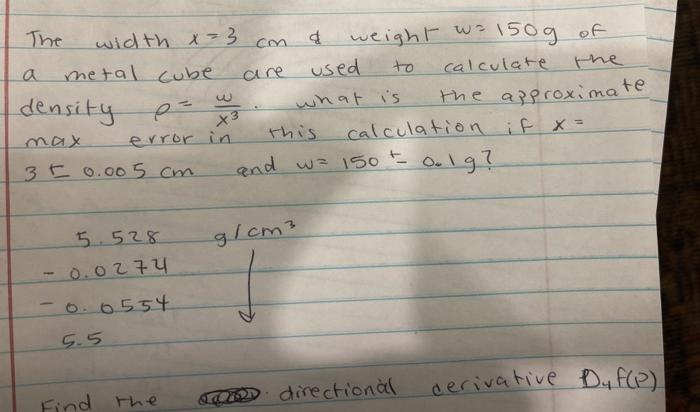 The width x = 3 cm & weight w = 150g of
a metal cube are used to calculate the
density ρ = w/x³. what is the approximate
max error in this calculation if x =
3 ± 0.005 cm and w = 150 ± 0.1g?
5.528 g/cm³
- 0.0274
- 0.0554
5.5
Find the directional derivative Duf(P)